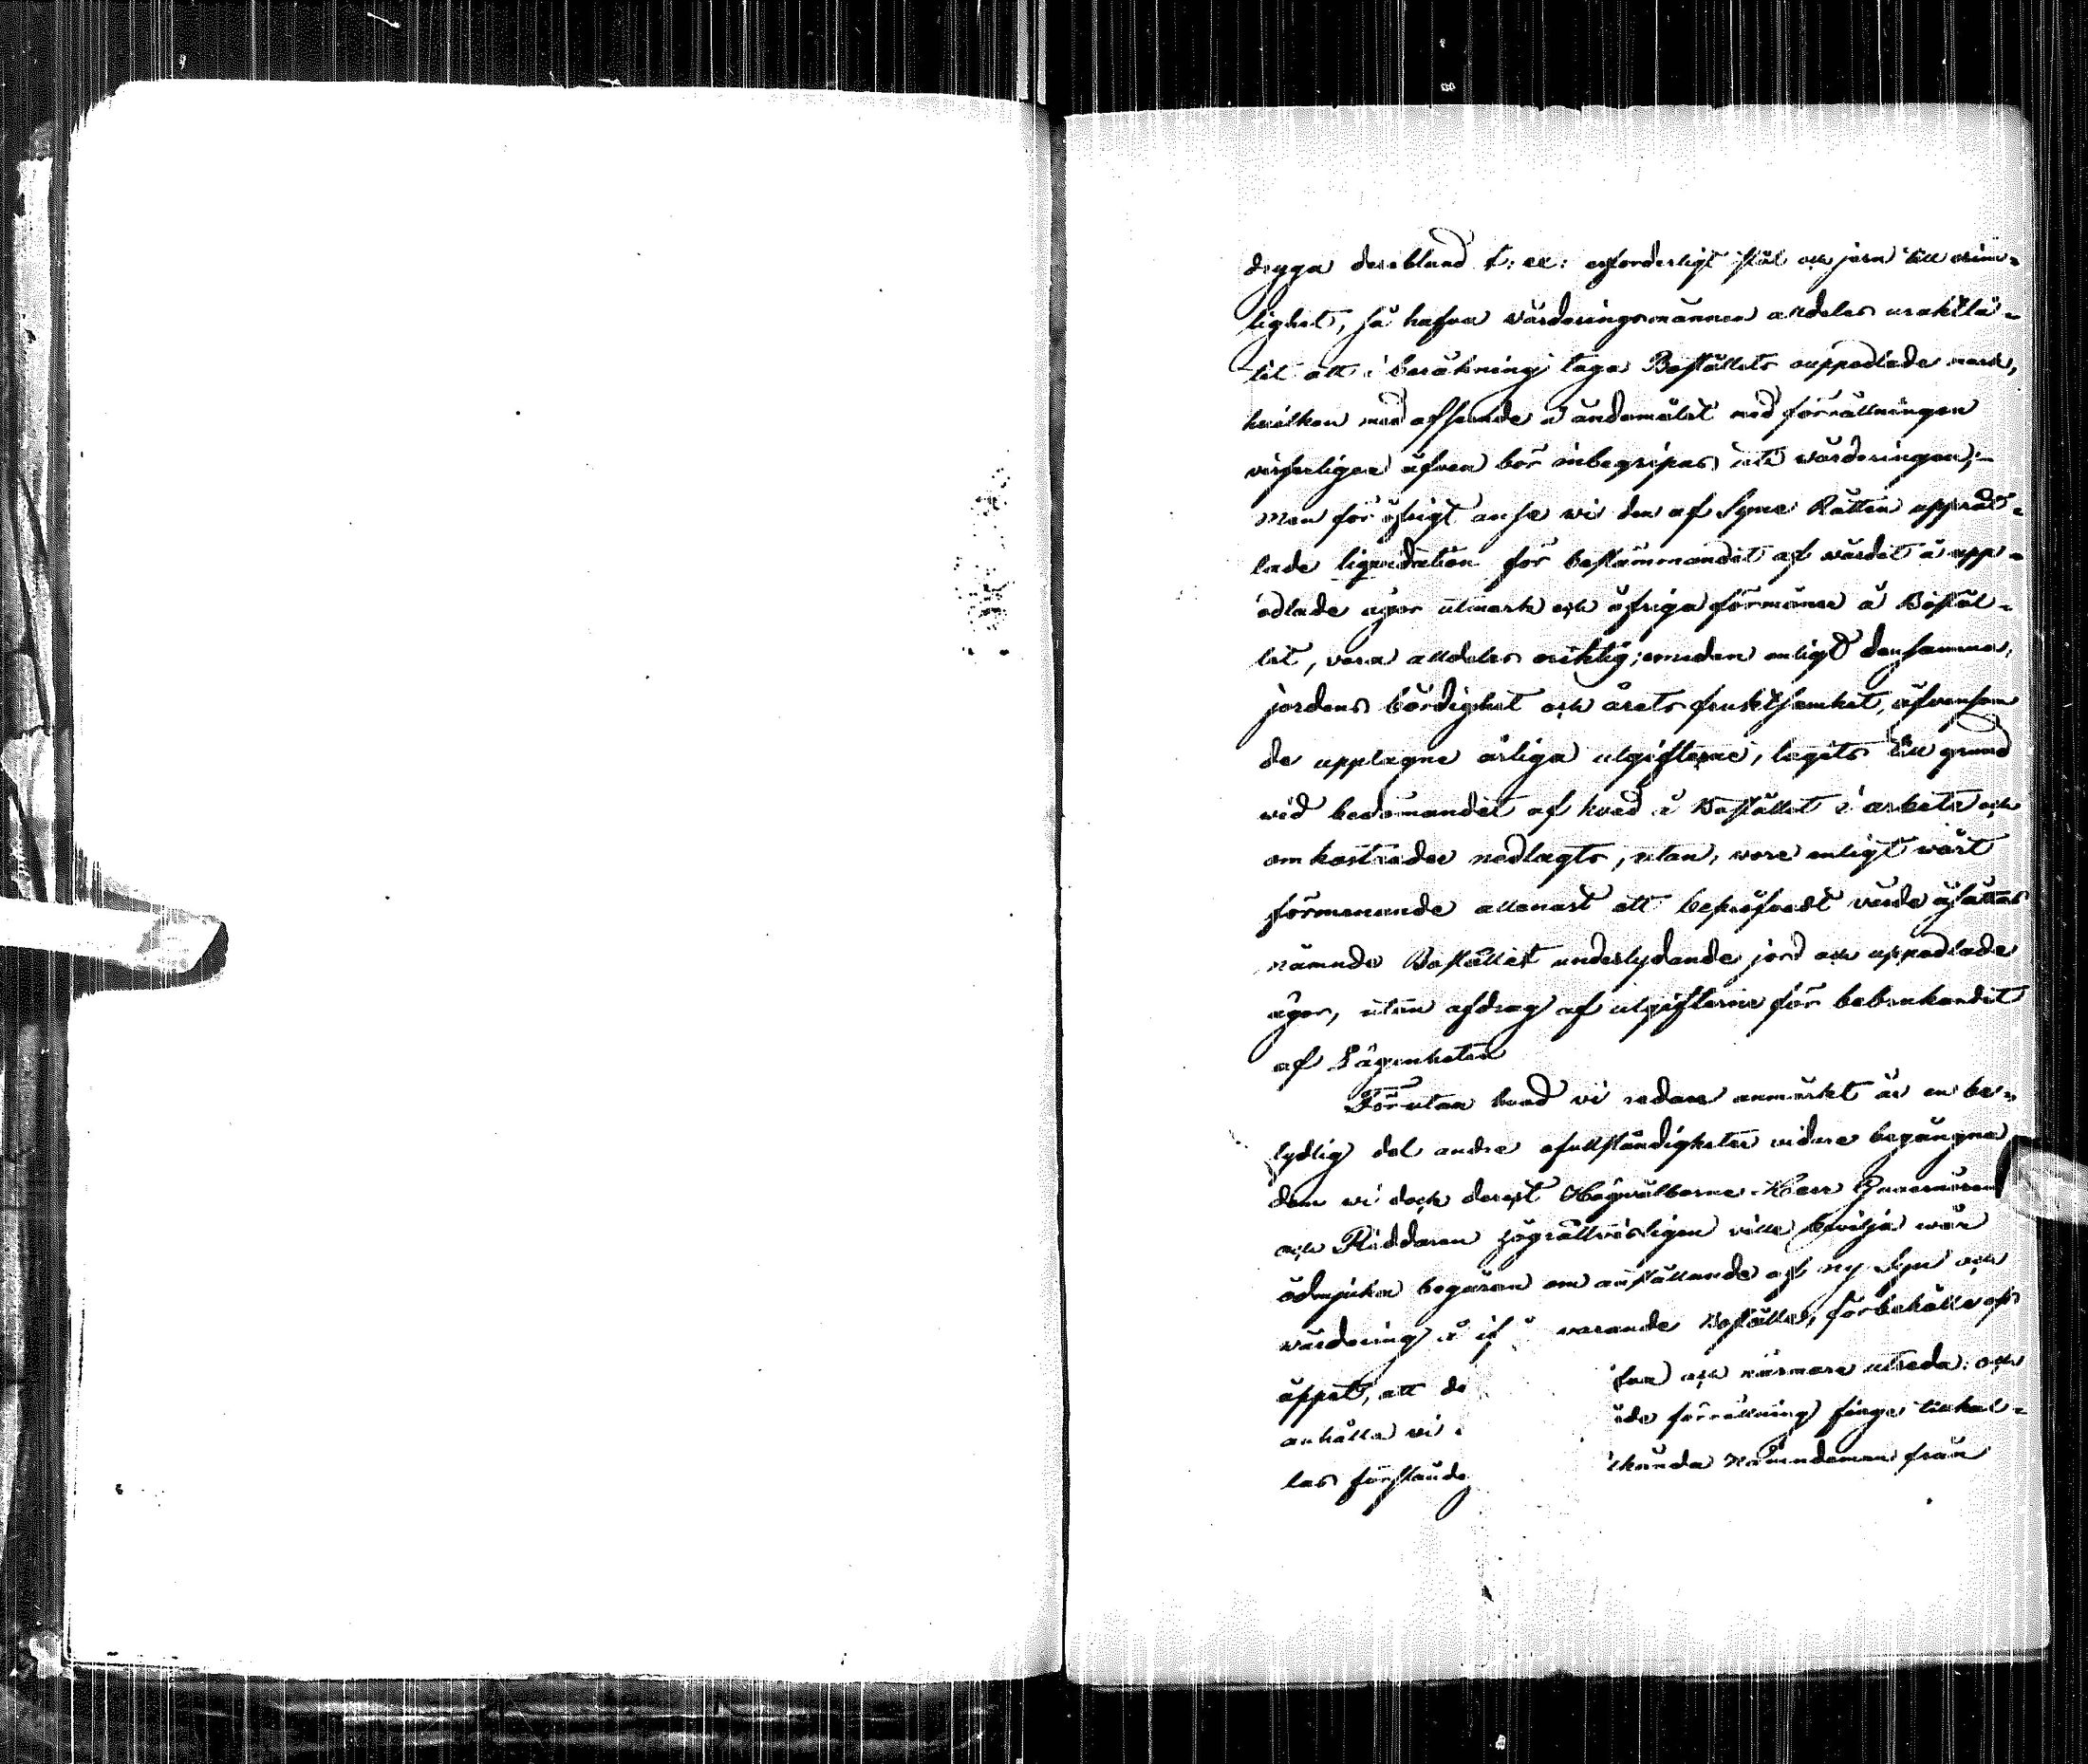 drygа derebland t: ex: erforderligt stål och jern till orim-
lighet, så hafva värderingsmännen alldeles uraktlå-
tit att i beräkning taga Boställets ouppodlade mark,
hvilken med afseende å ändamålet med förrättningen
visserligen äfven bör inbegripas i värderingen;
Men för öfrigt anse vi den af Syne Rätten upprät-
tade liqvidation för bestämmandet af värdet å upp-
odlade ägor utmark och öfriga förmåner å Bostäl-
let, vara alldeles oriktig; emedan enligt densamma,
jordens bördighet och årets fruktsamhet, äfvensom
de upptagne årliga utgifterne, tagits till grund
vid bedömandet af hvad å Bostället i arbete och
omkostnader nedlagts, utan, vore enligt vårt
förmenande allenast ett bepröfvadt värde åsättas
nämnde Bostället underlydande jord och uppodlade
ägor, utan afdrag af utgifterne för bebrukandet
af Lägenheten
Förutan hvad vi redan anmärkt är en be-
tydlig del andre ofullständigheter vidare begångne
dem vi dock derest Högvälborne Herr Guvernören
och Riddaren högrättvisligen ville bevilja vår
ödmjuka begäran om anställande af ny Syn och
värdering å if varande Bostället, förbehålle oss
öppet, att de och närmare utreda: och
anhålla vi förrättning finge tillkal-
las förstånde kunda Nämndemän från